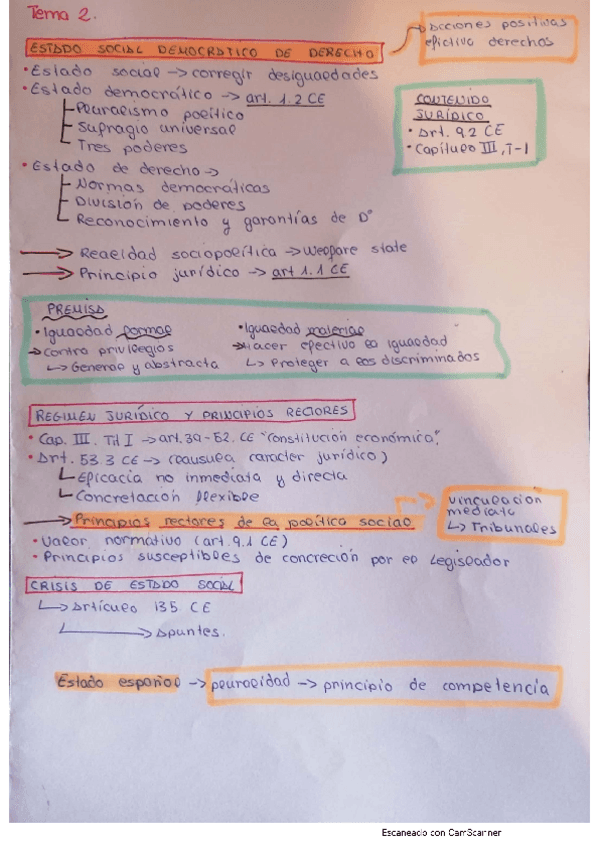 Tema 2.
ESTADO SOCIAL DEMOCRÁTICO DE DERECHO
Acciones positivas
efectivo derechos
• Estado social → corregir desigualdades
• Estado democrático → art. 1.2 CE
Pluralismo político
Sufragio universal
Tres poderes
CONTENIDO
JURÍDICO
• Art. 9.2 CE
• Capítulo III, T-I
• Estado de derecho →
Normas democráticas
División de poderes
Reconocimiento y garantías de Dº
→ Realidad sociopolítica → Welfare state
→ Principio jurídico → art 1.1 CE
PREMISA
• Igualdad formal
→ contra privilegios
↳ General y abstracta
• Igualdad material
→ Hacer efectivo la igualdad
↳ Proteger a los discriminados
REGIMEN JURÍDICO Y PRINCIPIOS RECTORES
• Cap. III. Tít I → art. 39-52. CE "Constitución económica".
• Art. 53.3 CE → (clausula carácter jurídico)
Eficacia no inmediata y directa
Concretación flexible
→ Principios rectores de la política social
vinculación
mediata
↳ Tribunales
• Valor normativo (art. 9.1 CE)
• Principios susceptibles de concreción por el legislador
CRISIS DE ESTADO SOCIAL
↳ Artículo 135 CE
↳ Apuntes.
Estado español → pluralidad → principio de competencia
Escaneado con CamScanner